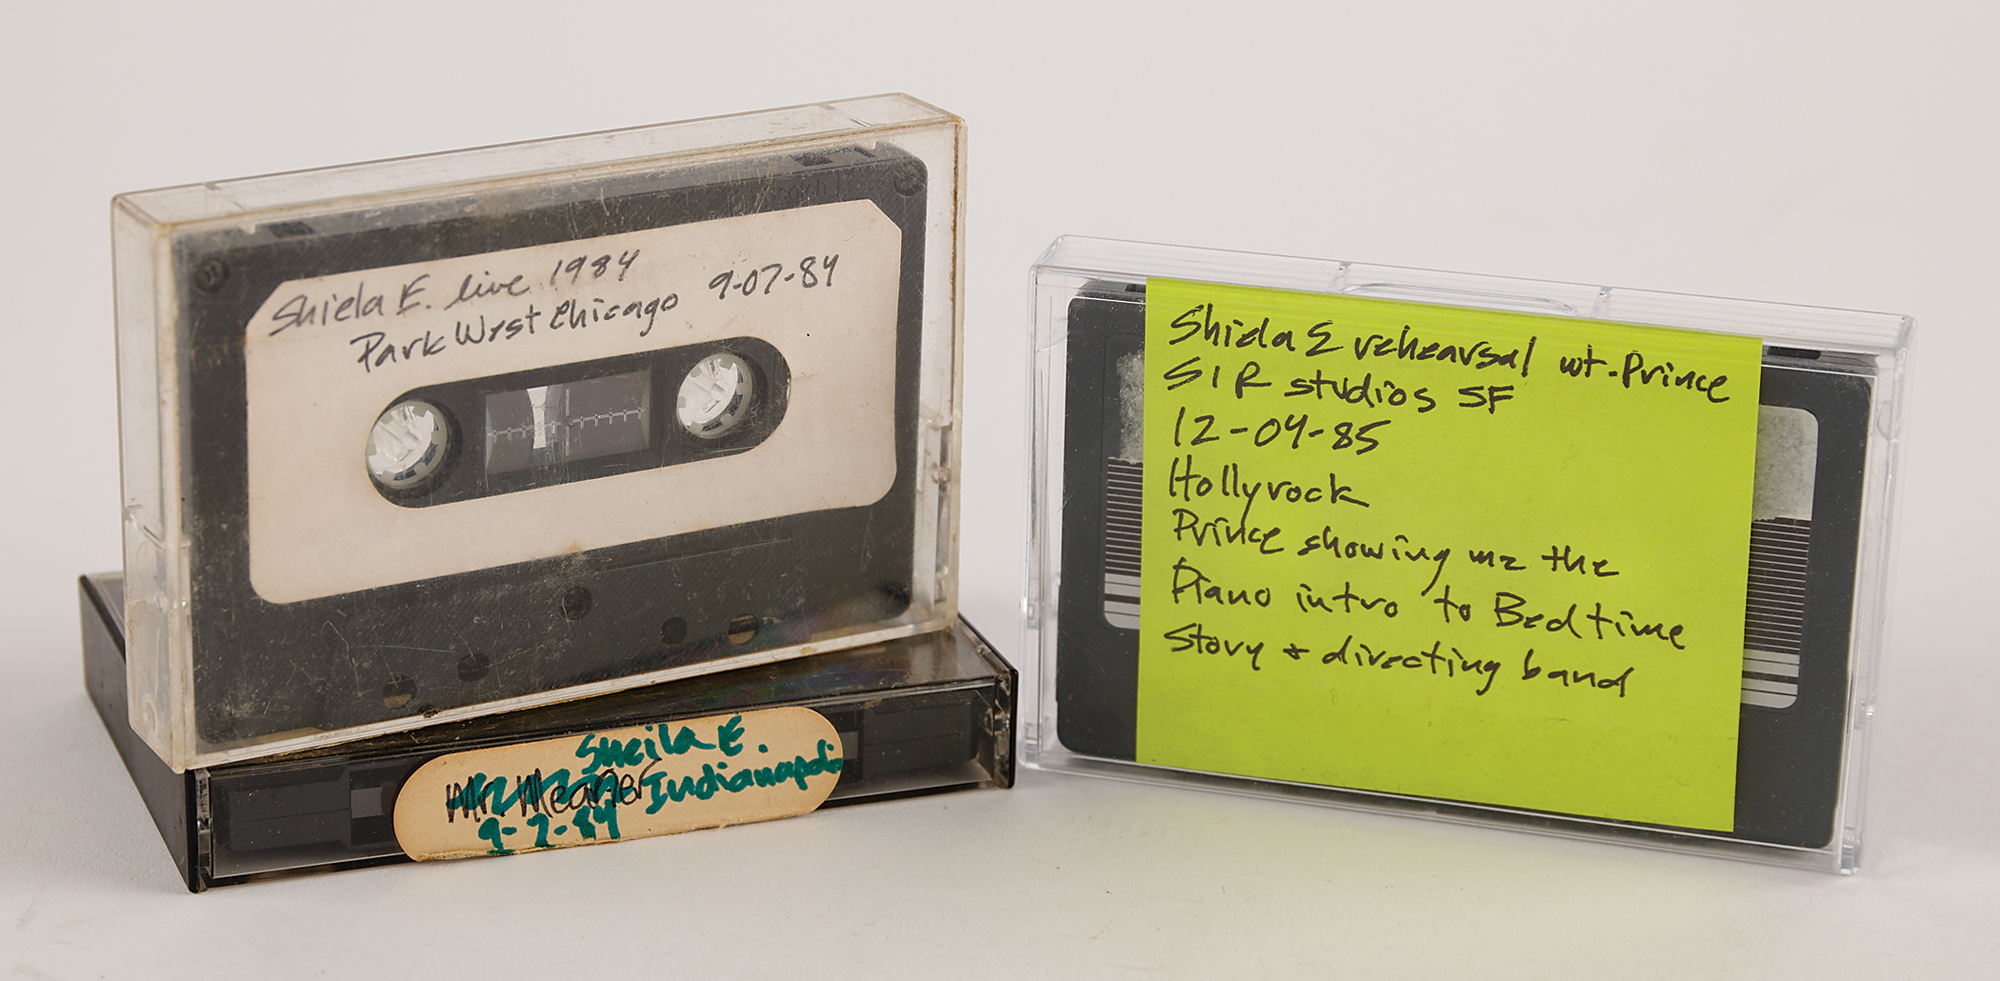 Shiela E. live 1984
Park West Chicago 9-07-84
Sheila E.
Mr. Meaner Indianapolis
9-2-84
Shiela E rehearsal wt. Prince
SIR studios SF
12-04-85
Hollyrock
Prince showing me the
Piano intro to Bedtime
Story + directing band